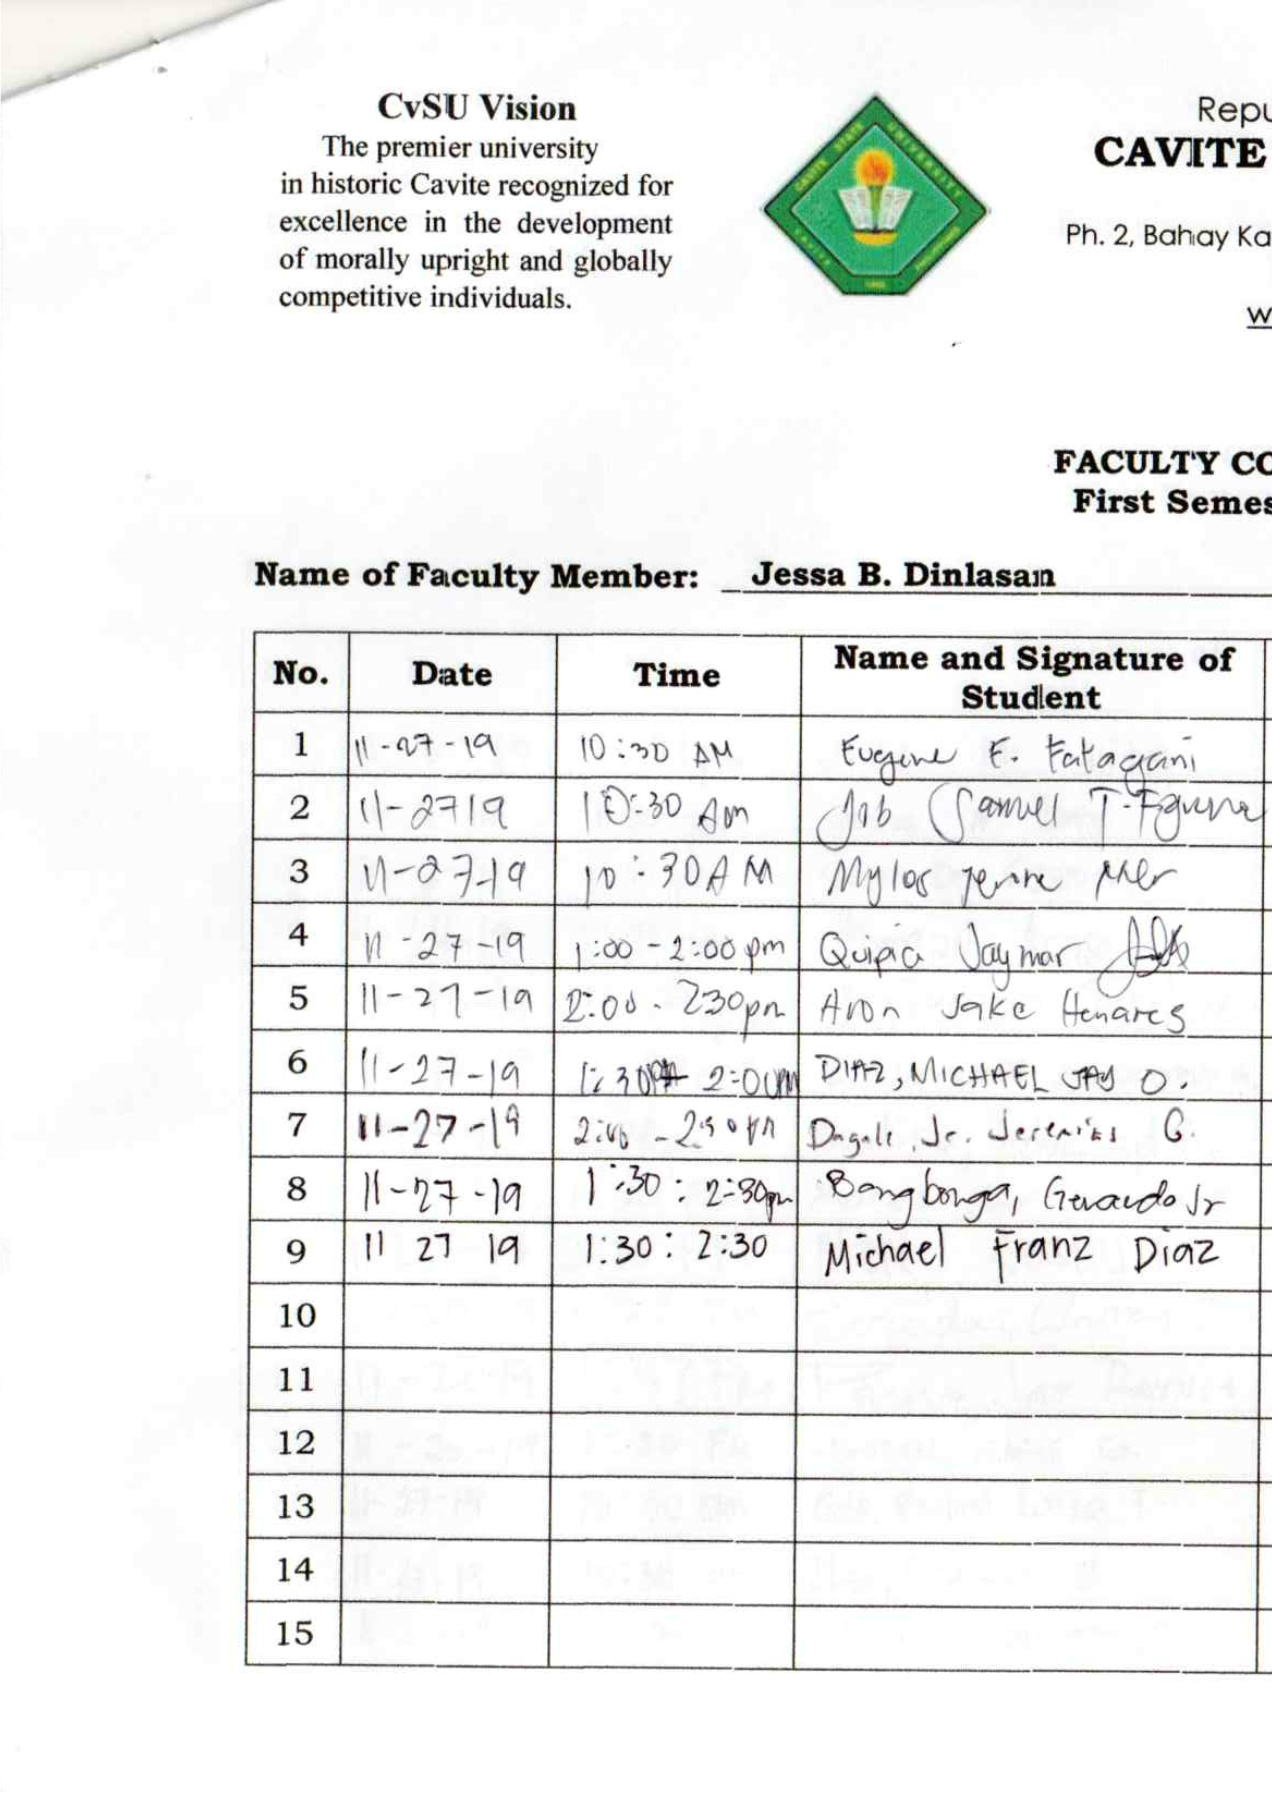 CvSU Vision
The premier university
in historic Cavite recognized for
excellence in the development
of morally upright and globally
competitive individuals.
CAVITE STATE UNIVERSITY
CAVITE
Repu
CAVITE
Ph. 2, Bahay Ka
w
FACULTY CO
First Semes
Name of Faculty Member: Jessa B. Dinlasan
No. Date Time Name and Signature of
Student
1 11-27-19 10:30 AM Eugene E.
2 11-2719 10:30 Am Job Samuel T.
3 11-27-19 10:30AM Mylos
4 11-27-19 1:00-2:00pm Jaymar
5 11-27-19 2:00-230pm Aron Jake Henares
6 11-27-19 1:30 2:00 DIAZ, MICHAEL JAY O.
7 11-27-19 Jr. Jeremias G.
8 11-27-19 1:30:2:30pm Bangbonga, Gerardo Jr
9 11 27 19 1:30:2:30 Michael Franz Diaz
10
11
12
13
14
15